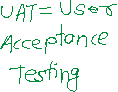 UAT = User
Acceptance
Testing